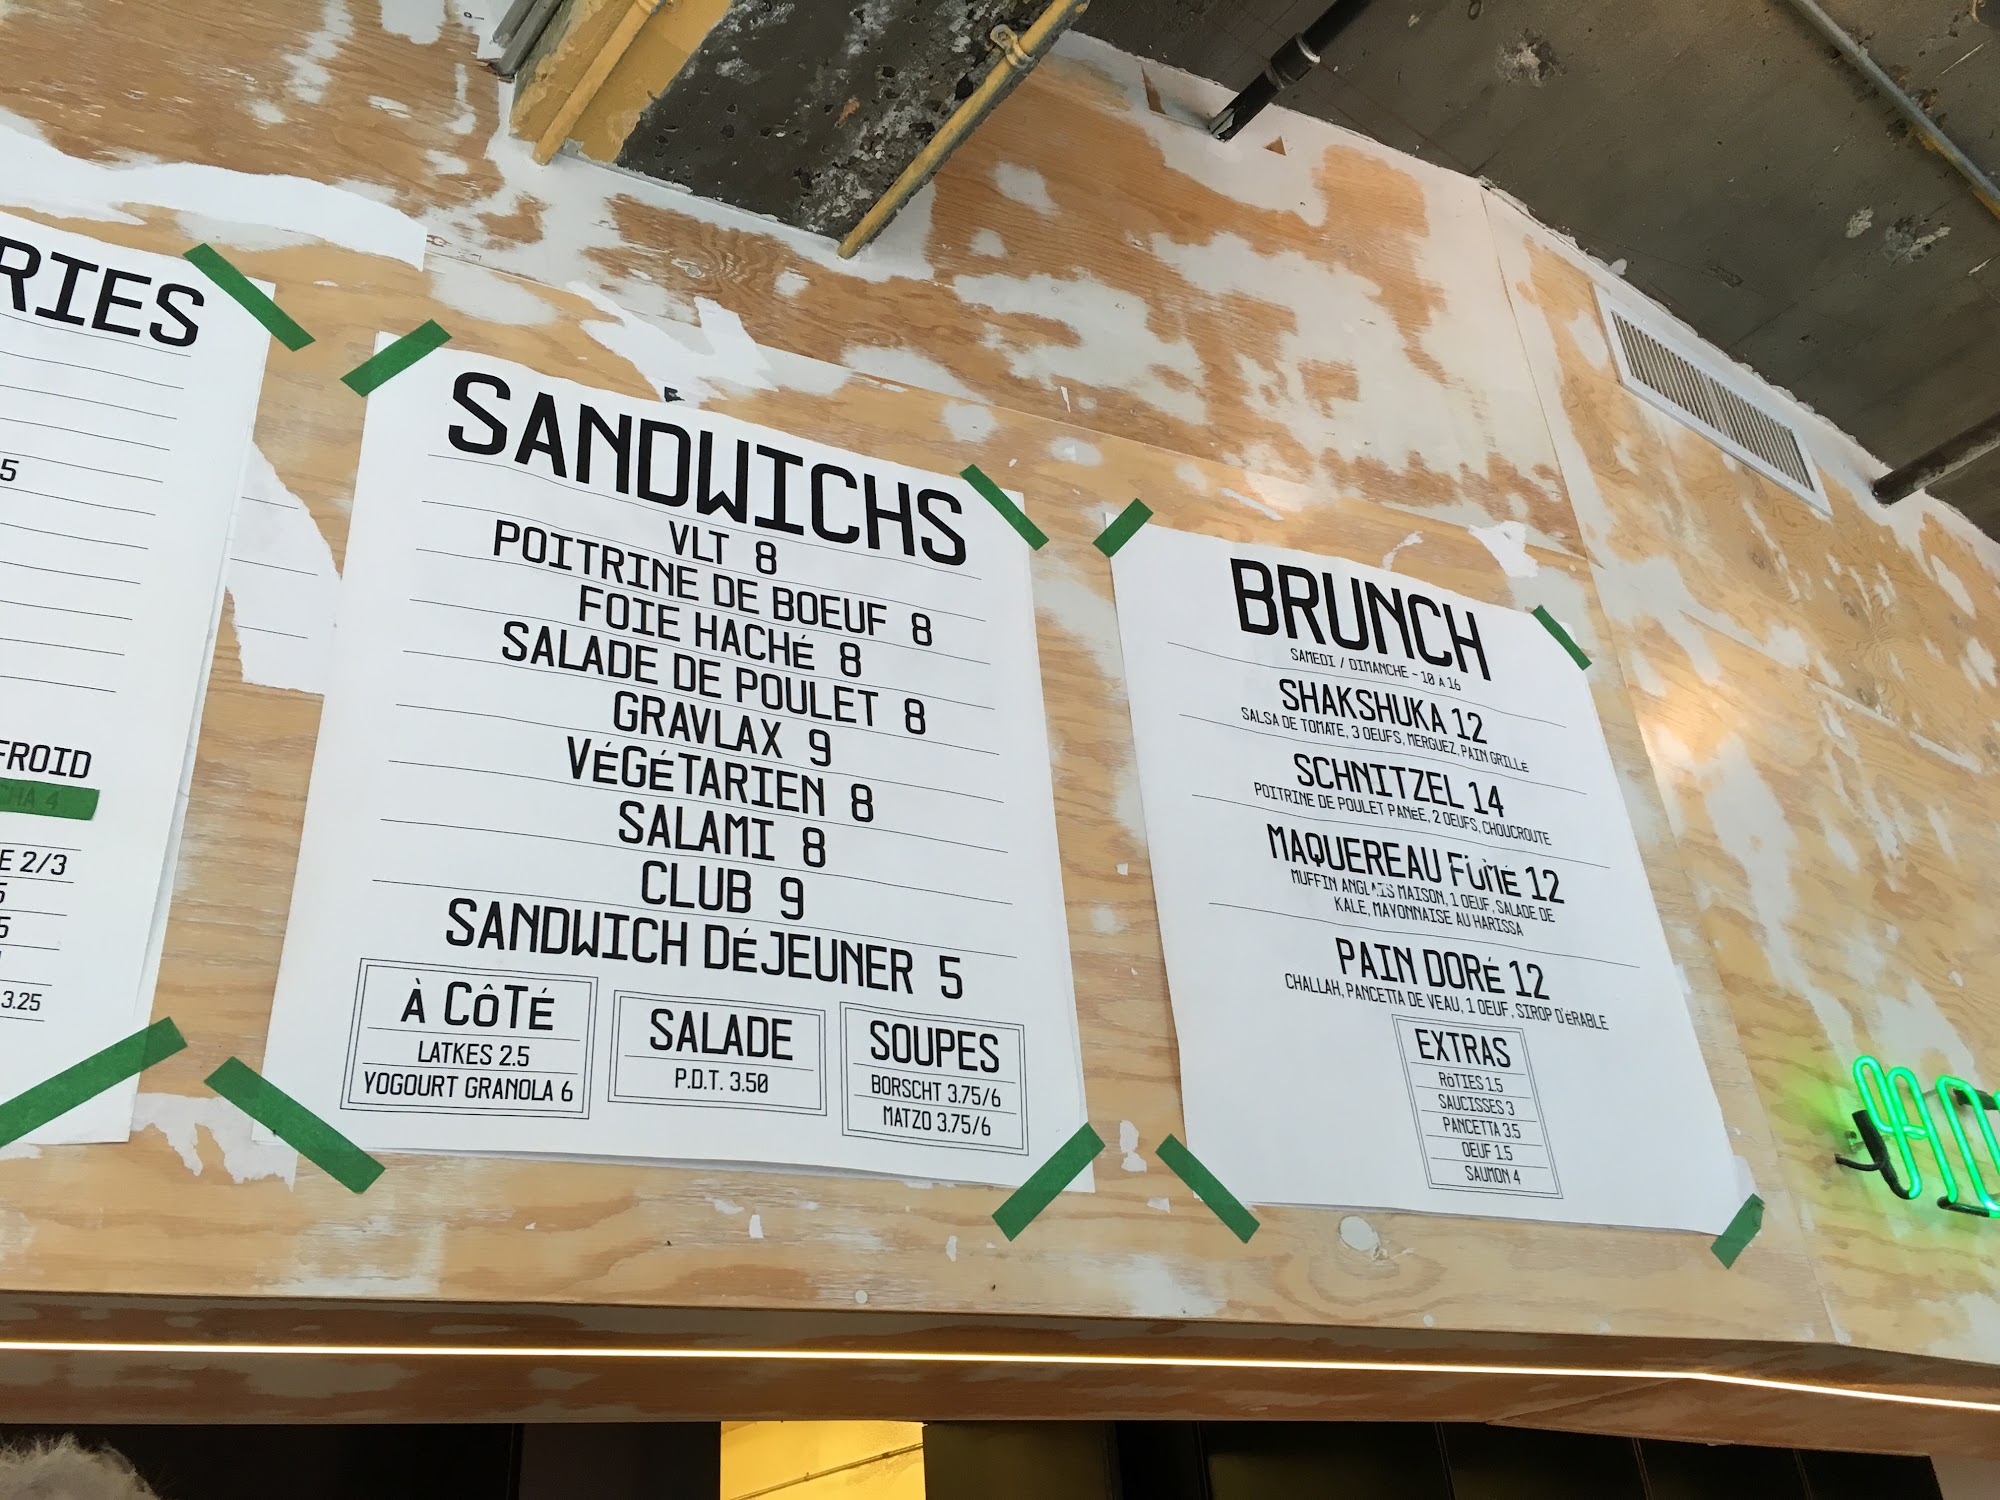 RIES
5
FROID
CHA 4
E 2/3
5
5
3.25
SANDWICHS
VLT 8
POITRINE DE BOEUF 8
FOIE HACHÉ 8
SALADE DE POULET 8
GRAVLAX 9
VÉGÉTARIEN 8
SALAMI 8
CLUB 9
SANDWICH DÉJEUNER 5
À CÔTÉ
LATKES 2.5
YOGOURT GRANOLA 6
SALADE
P.D.T. 3.50
SOUPES
BORSCHT 3.75/6
MATZO 3.75/6
BRUNCH
SAMEDI / DIMANCHE - 10 À 16
SHAKSHUKA 12
SALSA DE TOMATE, 3 OEUFS, MERGUEZ, PAIN GRILLÉ
SCHNITZEL 14
POITRINE DE POULET PANÉE, 2 OEUFS, CHOUCROUTE
MAQUEREAU FUMÉ 12
MUFFIN ANGLAIS MAISON, 1 OEUF, SALADE DE
KALE, MAYONNAISE AU HARISSA
PAIN DORÉ 12
CHALLAH, PANCETTA DE VEAU, 1 OEUF, SIROP D'ÉRABLE
EXTRAS
RÔTIES 1.5
SAUCISSES 3
PANCETTA 3.5
OEUF 1.5
SAUMON 4